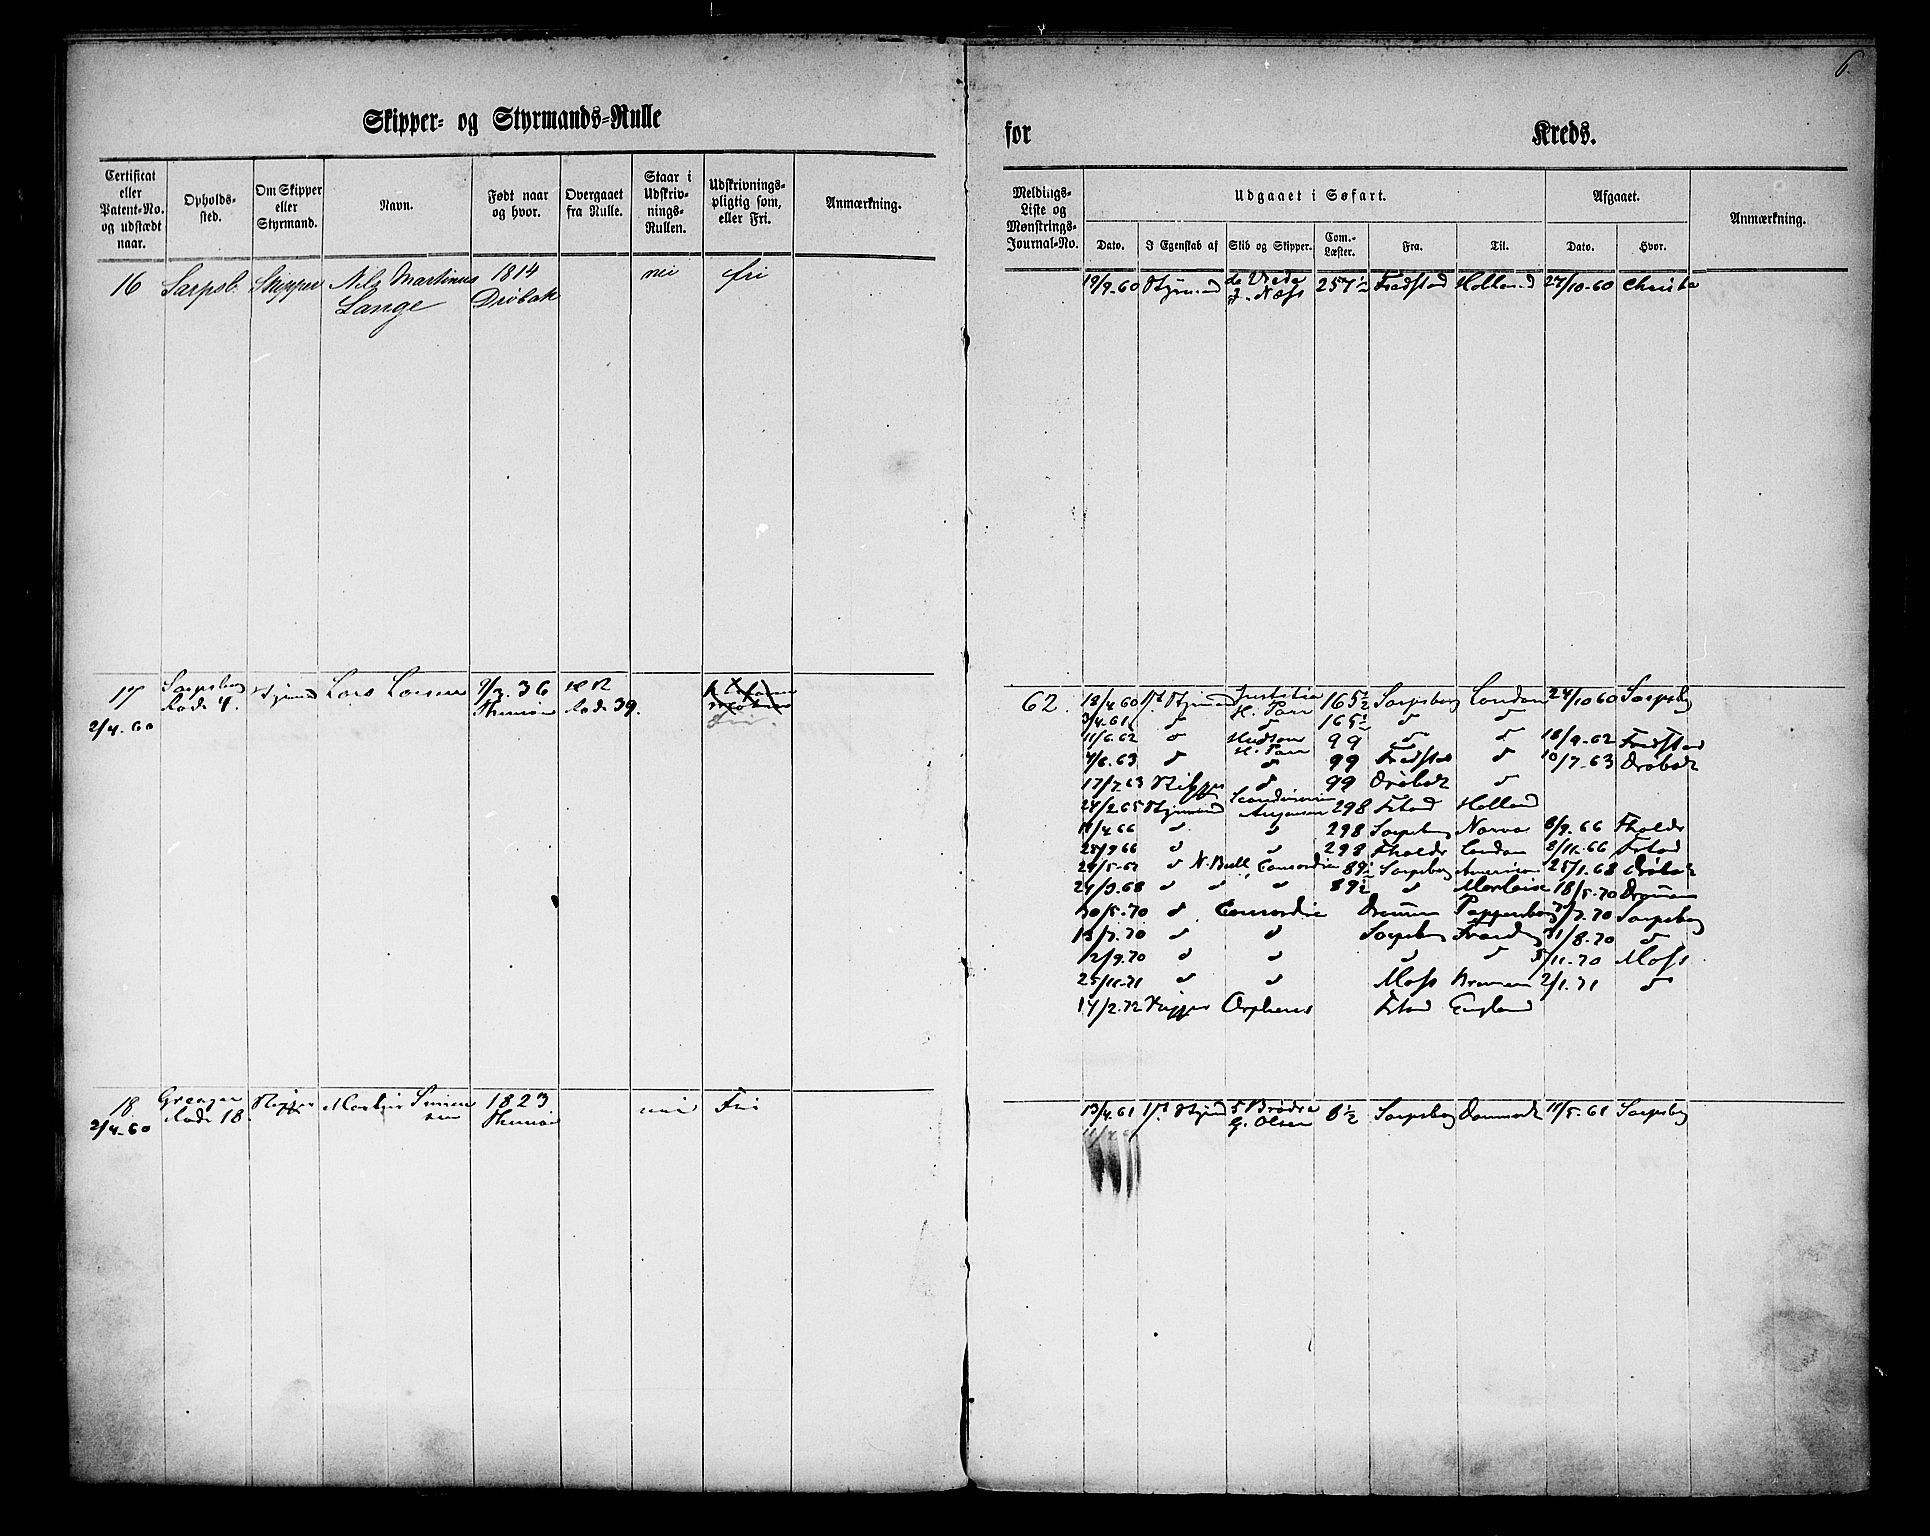 6.
Skipper- og Styrmands-Rulle
for Kreds.
Certificat eller Patent-No. og udstædt naar.
Opholds-sted.
Om Skipper eller Styrmand.
Navn.
Født naar og hvor.
Overgaaet fra Rulle.
Staar i Udskriv-nings-Rullen.
Udskrivnings-pligtig som, eller Fri.
Anmærkning.
Meldings-Liste og Mønstrings-Journal-No.
Udgaaet i Søfart.
Afgaaet.
Anmærkning.
Dato. I Egenskab af Skib og Skipper. Com.-Læster. Fra. Til. Dato. Hvor.
16 Sarpsb. Skipper Nils Martinus 1814 nei fri
Lange Drøbak
19/9-60 Styrmand de Vrede 257 1/2 Fredstad Holland 27/10-60 Christa
J. Næss
17 Sarpsborg Styrmd Lars Larsen 9/3.36
2/4.60 39.
Fri
62 18/4.60 1st Styrmand Justitia 165 1/2 Sarpsborg London 24/10 60 Sarpsbg
H. Parr
3/4.61 " " 165 1/2 " "
11/6.62 " Hudson 99 " " 18/9-62 Fredstad
H. Parr
4/6.63 " " 99 Fredstad " 10/7-63 Drøbak
17/7.63 Skipper " 99 Drøbak "
24/2.65 Styrmand Scandinavien 298 Fstad Holland
14/4.66 " " 298 Sarpsborg Narva 8/9.66 Fhalds
25/9 66 " " 298 Fhalds London 8/11-66 Fstad
29/5-67 " N. Bull, Concordia 89 1/2 Sarpsborg 25/1.68 Drøbak
24/3.68 " " " 89 1/2 " 18/5.70 Drammen
30/5-70 " Concordia Drammen Pappenborg /7.70 Sarpsborg
13/7.70 " " Sarpsborg 31/8.70 "
12/9.70 " " " " 5/11-70 Moss
25/11-71 " " Moss Bremen 2/1.71 "
14/2.72 Skipper Orpheus Fstad England
18. Greaker Skipper Martin Simen 1823 nei Fri
2/4-60 Rode 18. sen
13/4.61 1st Styrmd 5 Brødre 8 1/2 Sarpsborg Danmark 11/5-61 Sarpsbg
G. Olsen